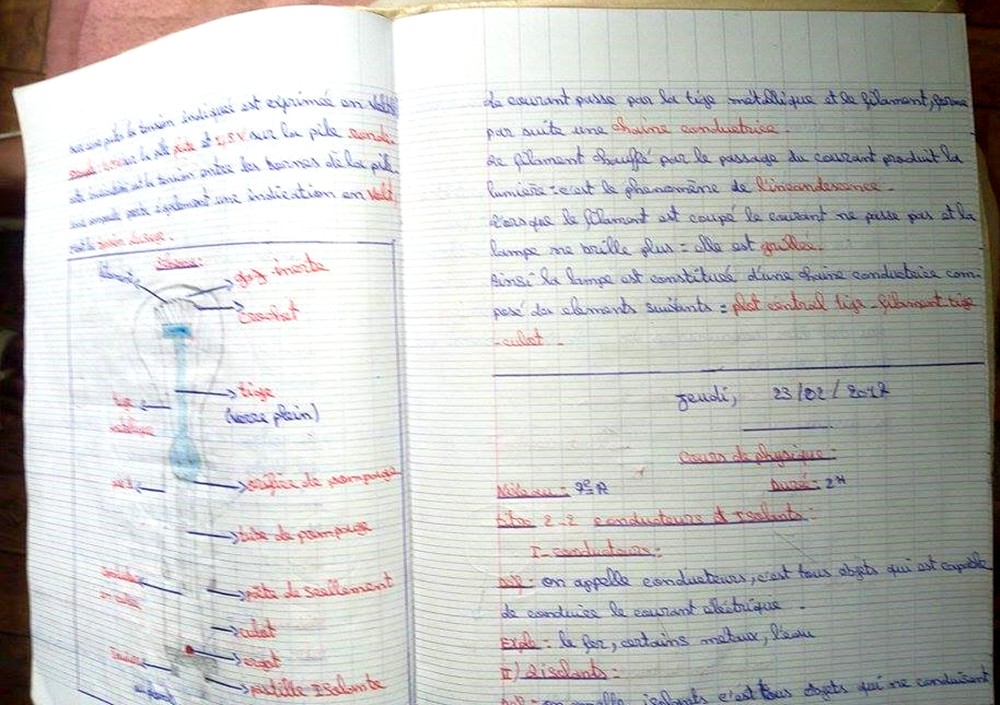 la tension indiquée est exprimée en Volt
sur la pile plate et 1,5V sur la pile
est la tension entre les bornes de la pile.
porte également une indication en Volt
tension d'usage.
Schéma:
gaz inerte
Crochet
tige
(verre plein)
tige
métallique
orifice de pompage
tube de pompage
pâte de scellement
culot
ergot
pastille Isolante
Le courant passe par la tige métallique et le filament, forme
par suite une chaine conductrice.
Le filament chauffé par le passage du courant produit la
lumière : c'est le phenomène de l'incandescence.
Lorsque le filament est coupé le courant ne passe pas et la
lampe ne brille plus = elle est grillée.
Ainsi la lampe est constituée d'une chaine conductrice com-
posé des elements suivants = plot central tige - filament tige
- culot -
Jeudi, 23/02/2017
Cours de physique:
Niveau : 9e A Durée : 2H
titre 2-2 conducteurs et Isolants :
I- conducteurs :
Def : on appelle conducteurs, c'est tous objets qui est capable
de conduire le courant electrique.
Exple : le fer, certains metaux, l'eau
II) Isolants :
Def : on appelle isolants c'est tous objets qui ne conduisent